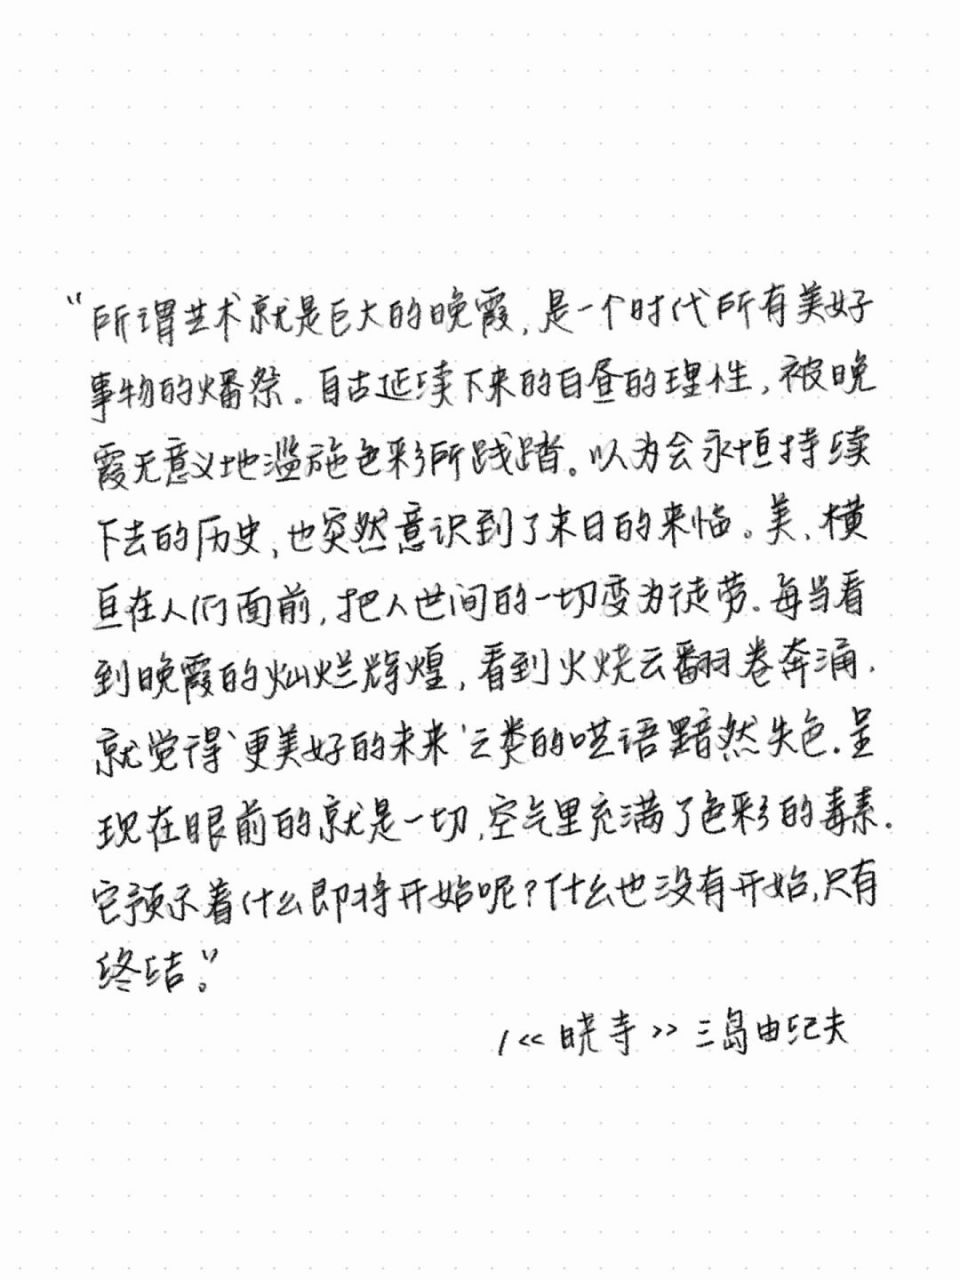 “所谓艺术就是巨大的晚霞,是一个时代所有美好
事物的燔祭。自古延续下来的白昼的理性,被晚
霞无意义地滥施色彩所践踏。以为会永恒持续
下去的历史,也突然意识到了末日的来临。美,横
亘在人们面前,把人世间的一切变为徒劳.每当看
到晚霞的灿烂辉煌,看到火烧云翻卷奔涌.
就觉得‘更美好的未来’之类的呓语黯然失色.呈
现在眼前的就是一切,空气里充满了色彩的毒素.
它预示着什么即将开始呢?什么也没有开始,只有
终结。”
/《晓寺》三岛由纪夫